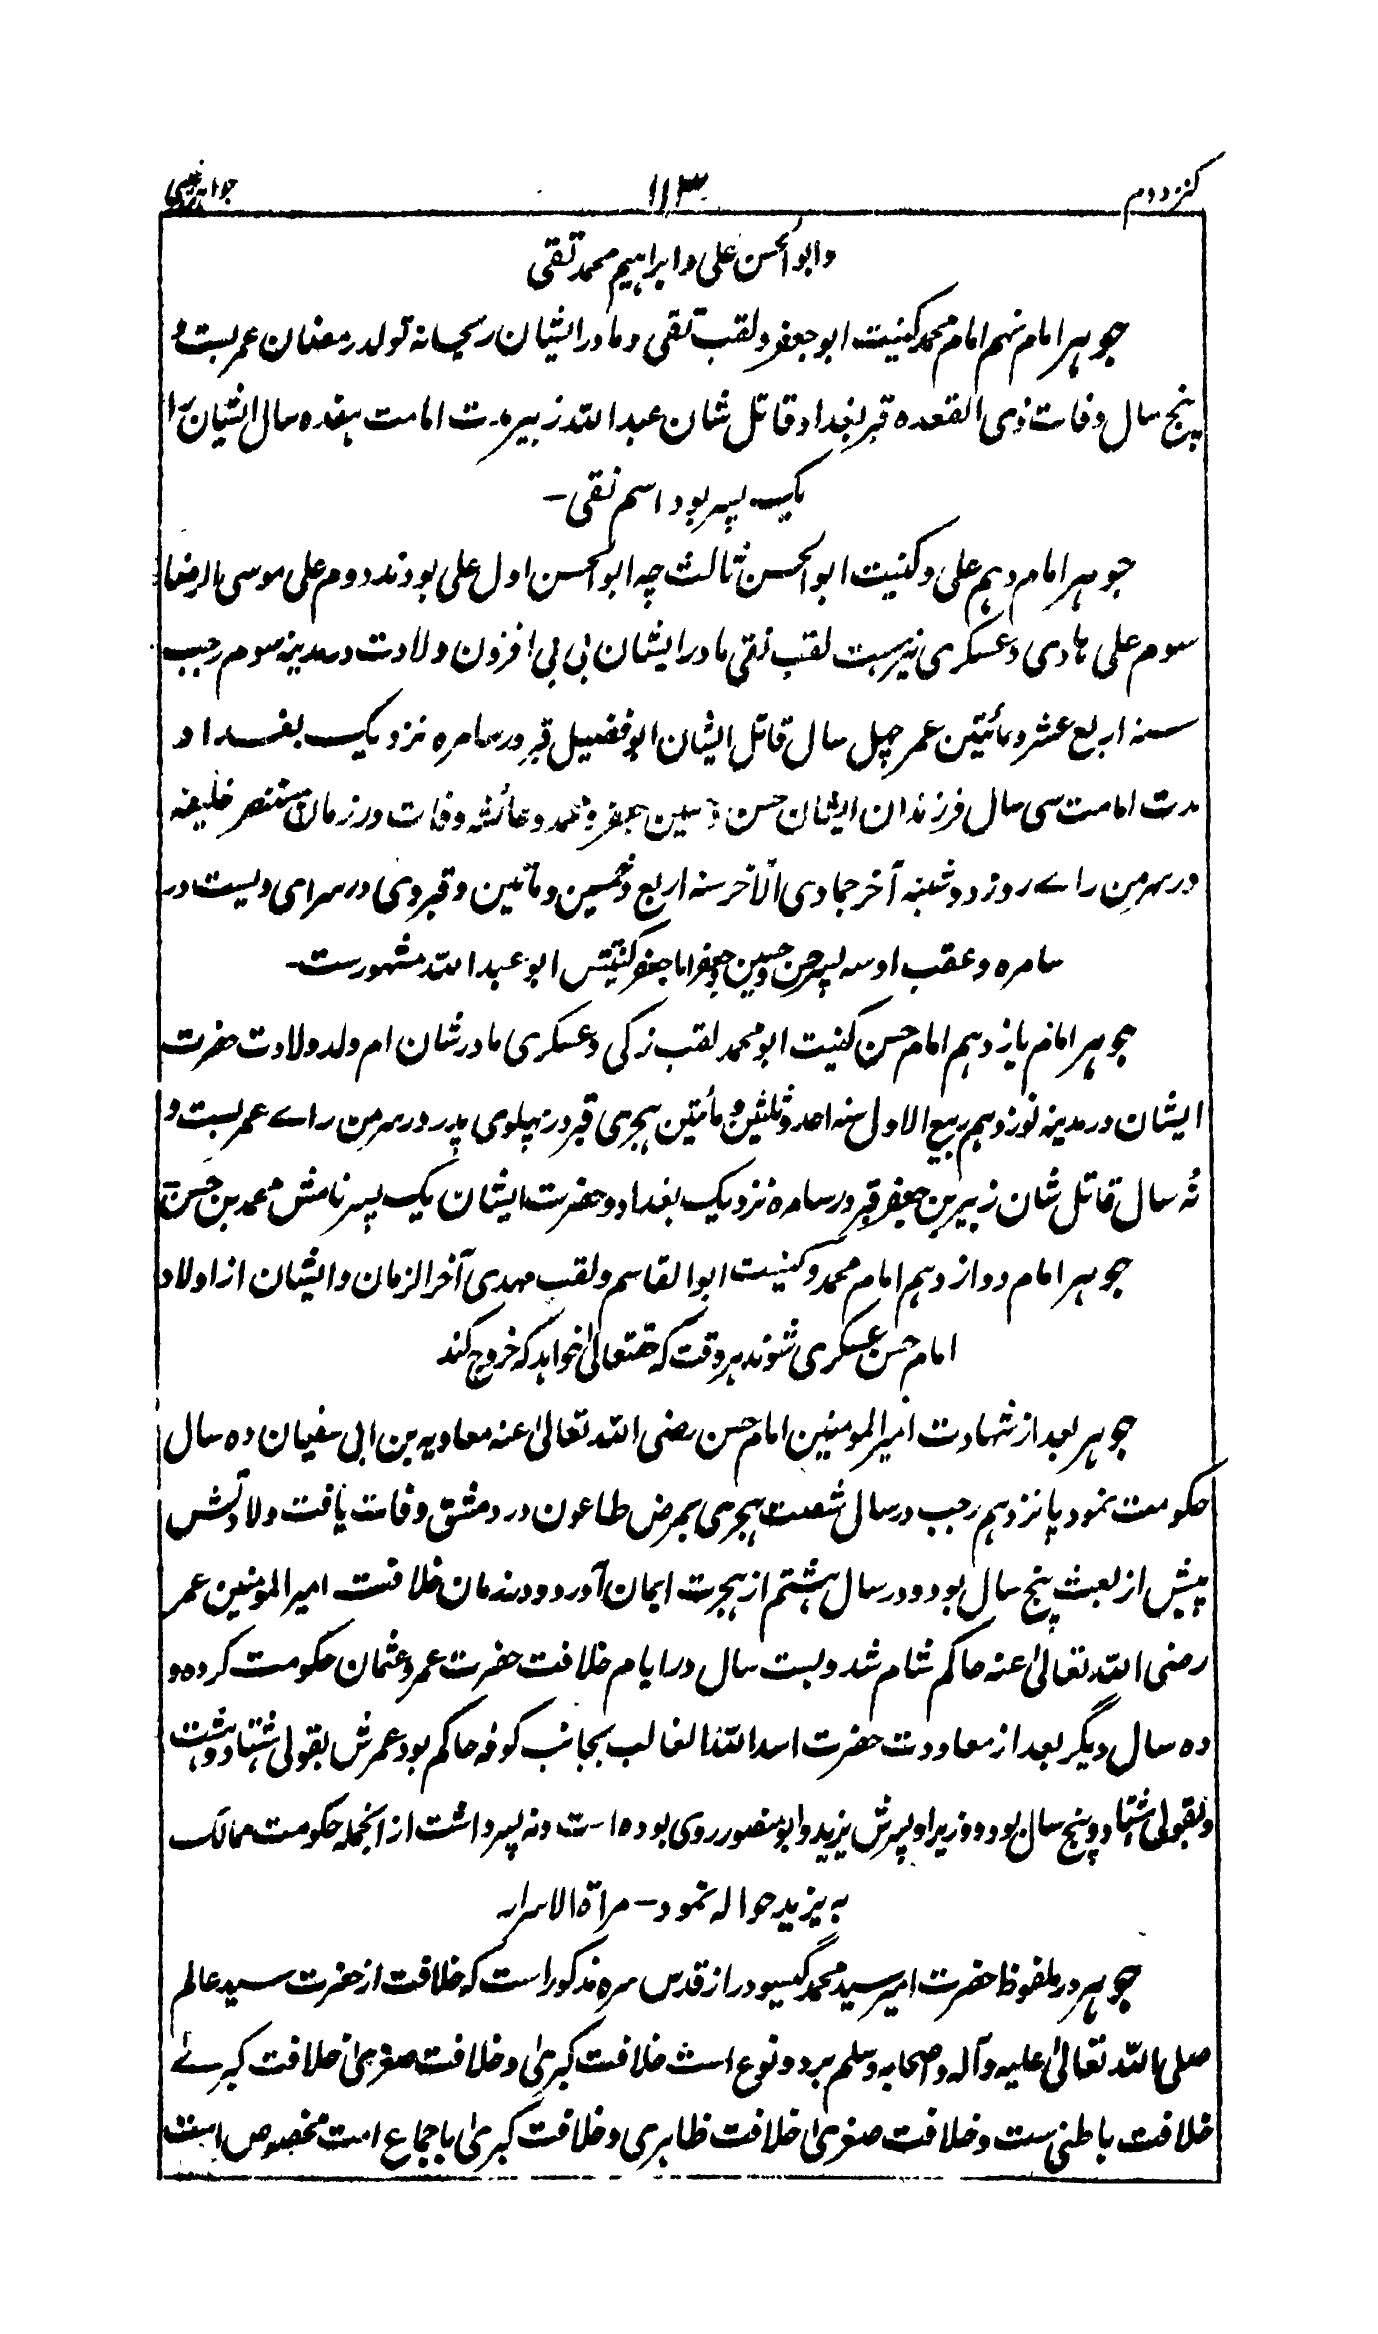 کنز دوم
۱۱۳
جواہر غیبی
و ابوالحسن علی و ابراہیم محمد تقی
جوہر امام نہم امام محمد کنیت ابو جعفر و لقب تقی و مادر ایشان ریحانہ تولد رمضان عمر بست و
پنج سال وفات ذی القعدہ قبر بغداد قاتل شان عبد اللہ زبیر مدت امامت ہفدہ سال ایشان را
یک پسر بود اسم نقی -
جوہر امام دہم علی و کنیت ابو الحسن ثالث چہ ابو الحسن اول علی بودند دوم علی موسی الرضا
سوم علی ہادی و عسکری نیز ست لقب نقی مادر ایشان بی بی افزون ولادت در مدینہ سوم رجب
سنہ اربع عشر و مأتین عمر چہل سال قاتل ایشان ابو فضیل قبر در سامرہ نزدیک بغداد
مدت امامت سی سال فرزندان ایشان حسن و حسین جعفر و محمد و عائشہ وفات در زمان مستنصر خلیفہ
در سر من راے روز دوشنبہ آخر جمادی الآخر سنہ اربع و خمسین و مأتین و قبر وی در سرای ویست در
سامرہ و عقب او سہ پسر حسن و حسین و جعفر اما جعفر کنیتش ابو عبد اللہ مشہورست -
جوہر امام یازدہم امام حسن کنیت ابو محمد لقب زکی و عسکری مادر شان ام ولد ولادت حضرت
ایشان در مدینہ نوزدہم ربیع الاول سنہ احد و ثلثین و مأتین ہجری قبر در پہلوی پدر در سر من راے عمر بست و
نہ سال قاتل شان زبیر بن جعفر قبر در سامرہ نزدیک بغداد و حضرت ایشان یک پسر نامش محمد بن حسن
جوہر امام دوازدہم امام محمد و کنیت ابو القاسم و لقب مہدی آخر الزمان و ایشان از اولاد
امام حسن عسکری شوند ہر وقت کہ حقتعالیٰ خواہد کہ خروج کند
جوہر بعد از شہادت امیر المومنین امام حسن رضی اللہ تعالیٰ عنہ معاویہ بن ابی سفیان دہ سال
حکومت نمود پانزدہم رجب در سال شصت ہجری بمرض طاعون در دمشق وفات یافت ولادتش
پیش از بعثت پنج سال بود و در سال ہشتم از ہجرت ایمان آورد و در زمان خلافت امیر المومنین عمر
رضی اللہ تعالیٰ عنہ حاکم شام شد و بست سال در ایام خلافت حضرت عمر و عثمان حکومت کردہ و
دہ سال دیگر بعد از معاودت حضرت اسد اللہ الغالب بجانب کوفہ حاکم بود عمرش بقولی ہشتاد و ہشت
و بقولی ہشتاد و پنج سال بود و وزیر او پسرش یزید و ابو منصور رومی بودہ است و نہ پسر داشت از انجملہ حکومت ممالک
بہ یزید حوالہ نمود - مرآة الاسرار
جوہر در ملفوظ حضرت امیر سید محمد گیسو دراز قدس سرہ مذکور است کہ خلافت از حضرت سید عالم
صلی اللہ تعالیٰ علیہ و آلہ و اصحابہ وسلم بر دو نوع است خلافت کبریٰ و خلافت صغریٰ خلافت کبرےٰ
خلافت باطنی ست و خلافت صغریٰ خلافت ظاہری و خلافت کبریٰ باجماع امت مخصوص است